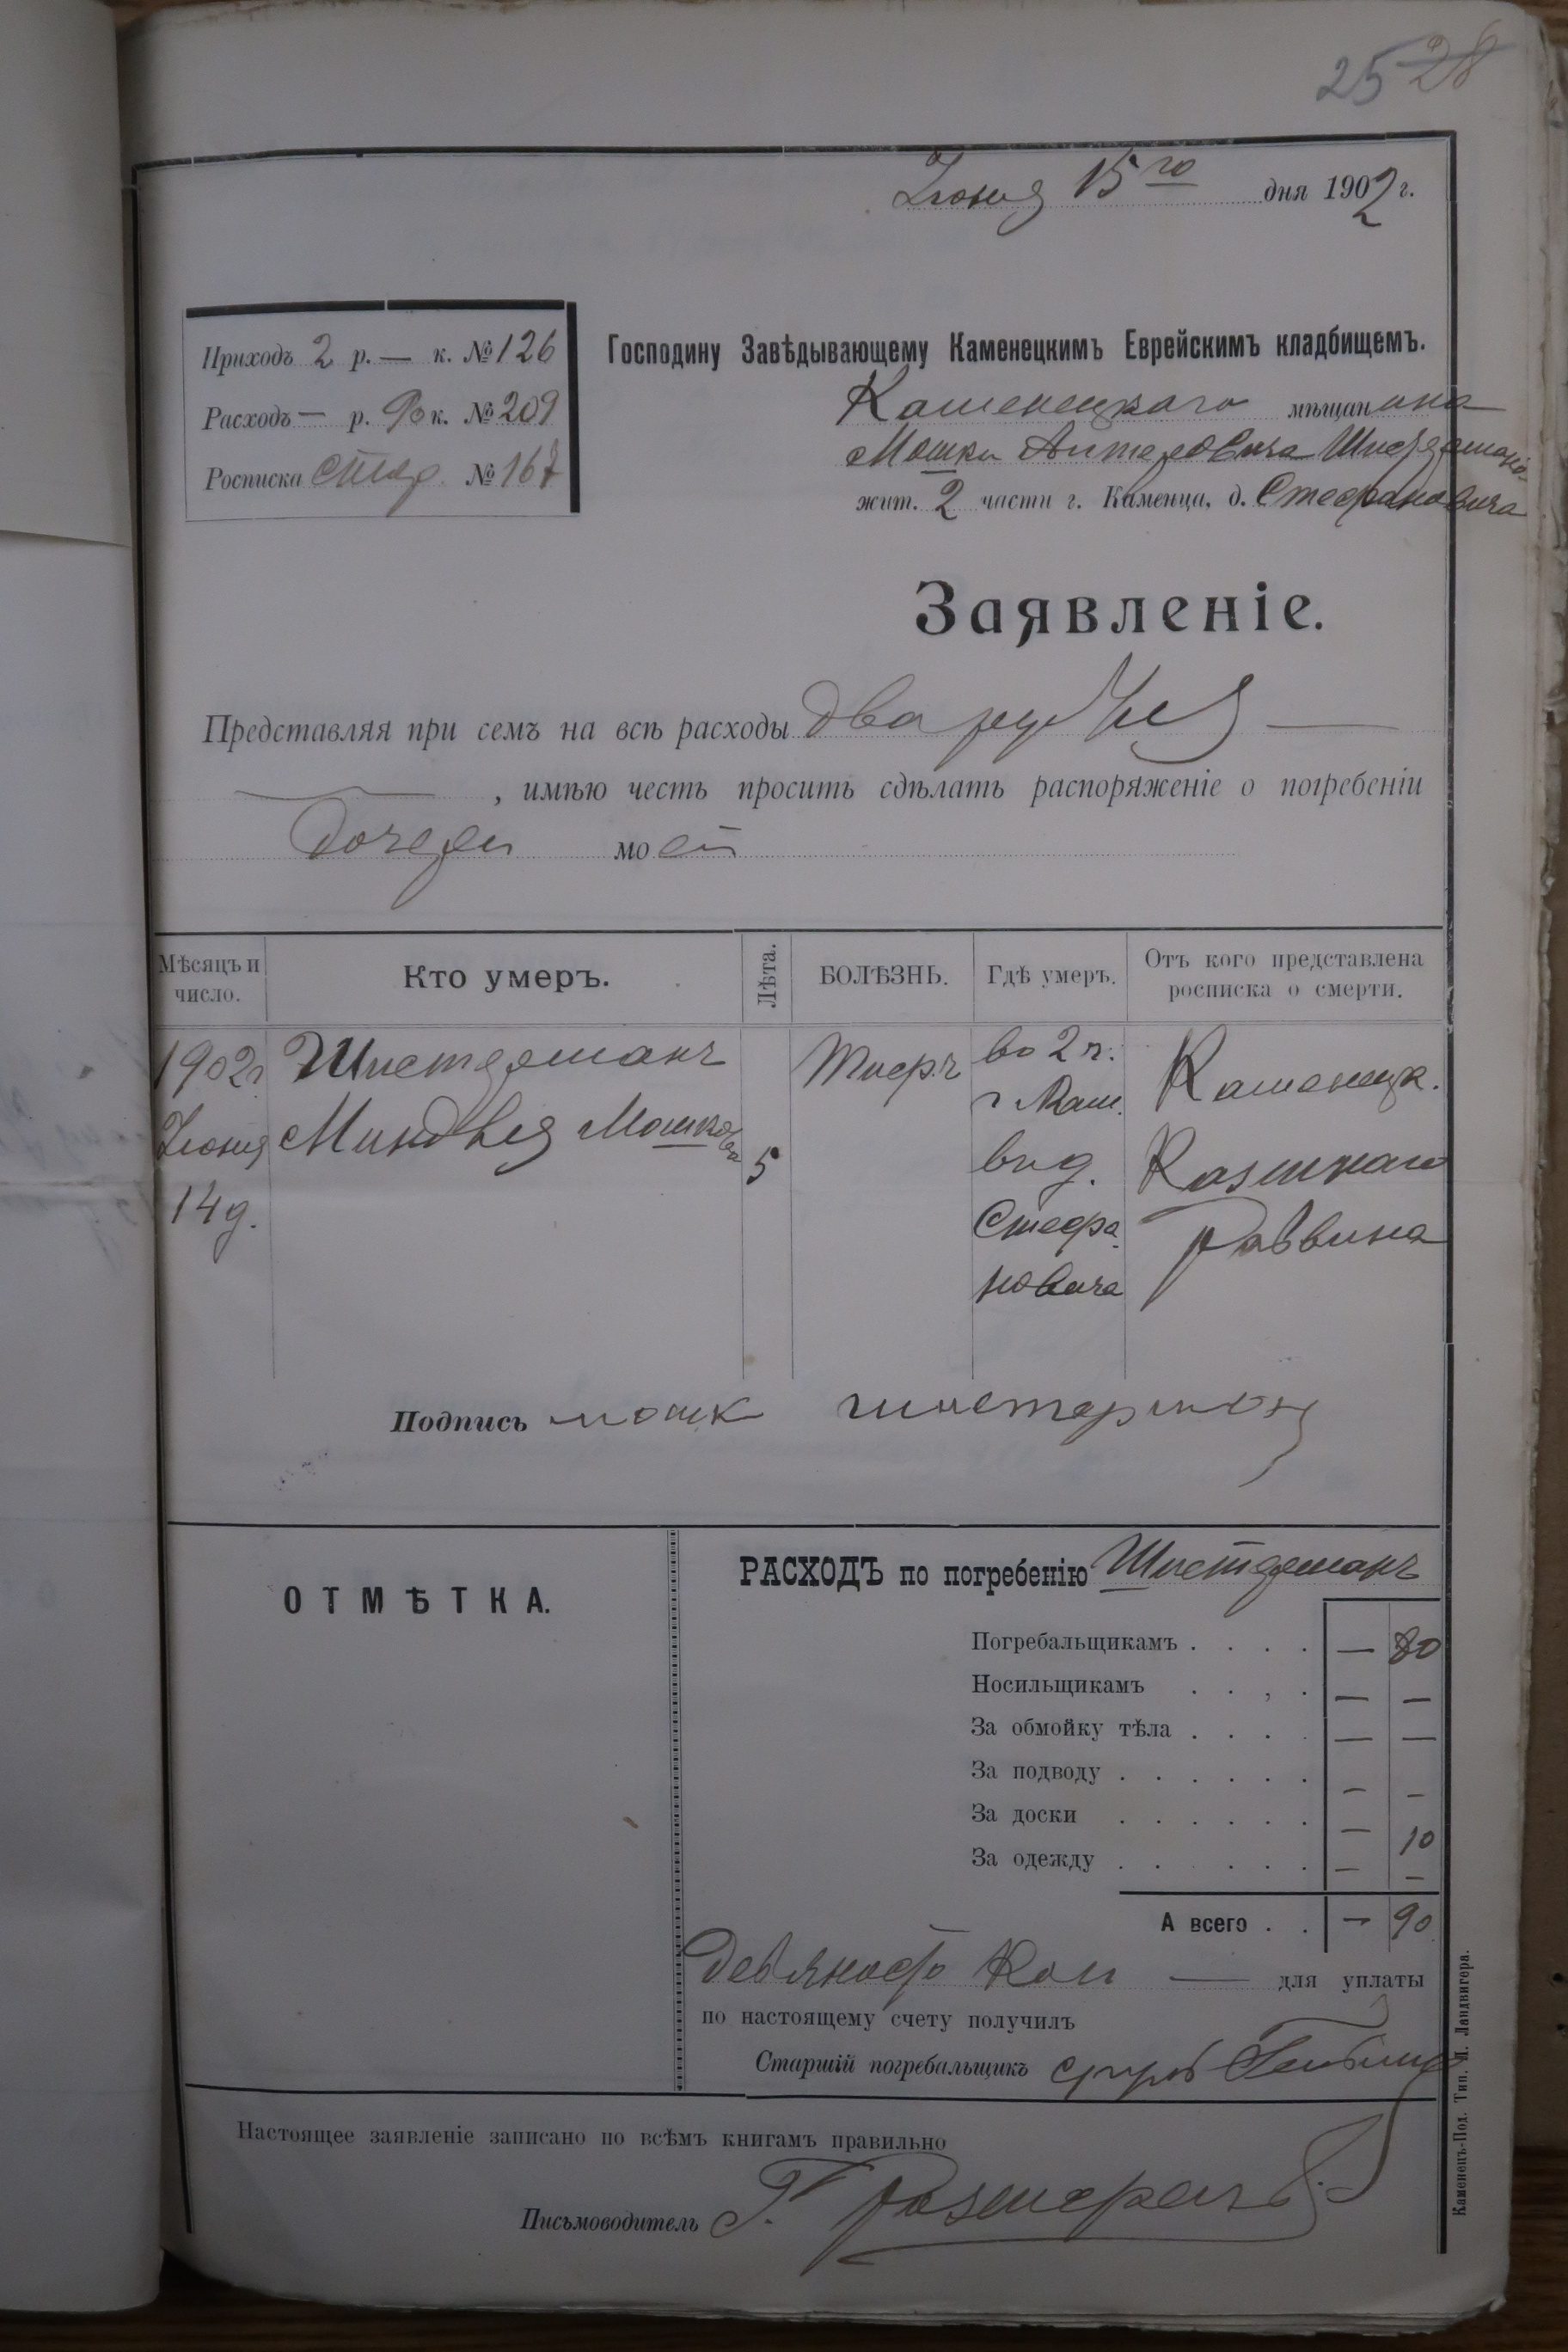 25 28
Іюня 15го дня 1902 г.
Приходъ 2 р. — к. № 126
Расходъ — р. 90 к. № 209
Росписка № 167
Господину Завѣдывающему Каменецкимъ Еврейскимъ кладбищемъ.
Каменецкаго мѣщанина
Мошки
жит. 2 части г. Каменца, д. Стефановича
Заявленіе.
Представляя при семъ на всѣ расходы два рубля —
— , имѣю честь просить сдѣлать распоряженіе о погребеніи
дочери моей
Мѣсяцъ и число. Кто умеръ. Лѣта. БОЛѢЗНЬ. Гдѣ умеръ. Отъ кого представлена росписка о смерти.
1902г Шистерманъ Тифъ во 2 ч. Каменецк.
Іюня Миндля Мошкова 5 г. Кам. Казеннаго
14 д. в д. Раввина
Стефа-
новича
Подпись мошк шистерман
ОТМѢТКА.
РАСХОДЪ по погребенію Шистерманъ
Погребальщикамъ . . . . — 80
Носильщикамъ . . , . — —
За обмойку тѣла . . . . — —
За подводу . . . . . . — —
За доски . . . . . . — 10
За одежду . . . . . . — —
А всего . . — 90
Девяносто коп — для уплаты
по настоящему счету получилъ
Старшій погребальщикъ
Настоящее заявленіе записано по всѣмъ книгамъ правильно
Письмоводитель Г.
Каменецъ-Под. Тип. Л. Ландвигера.